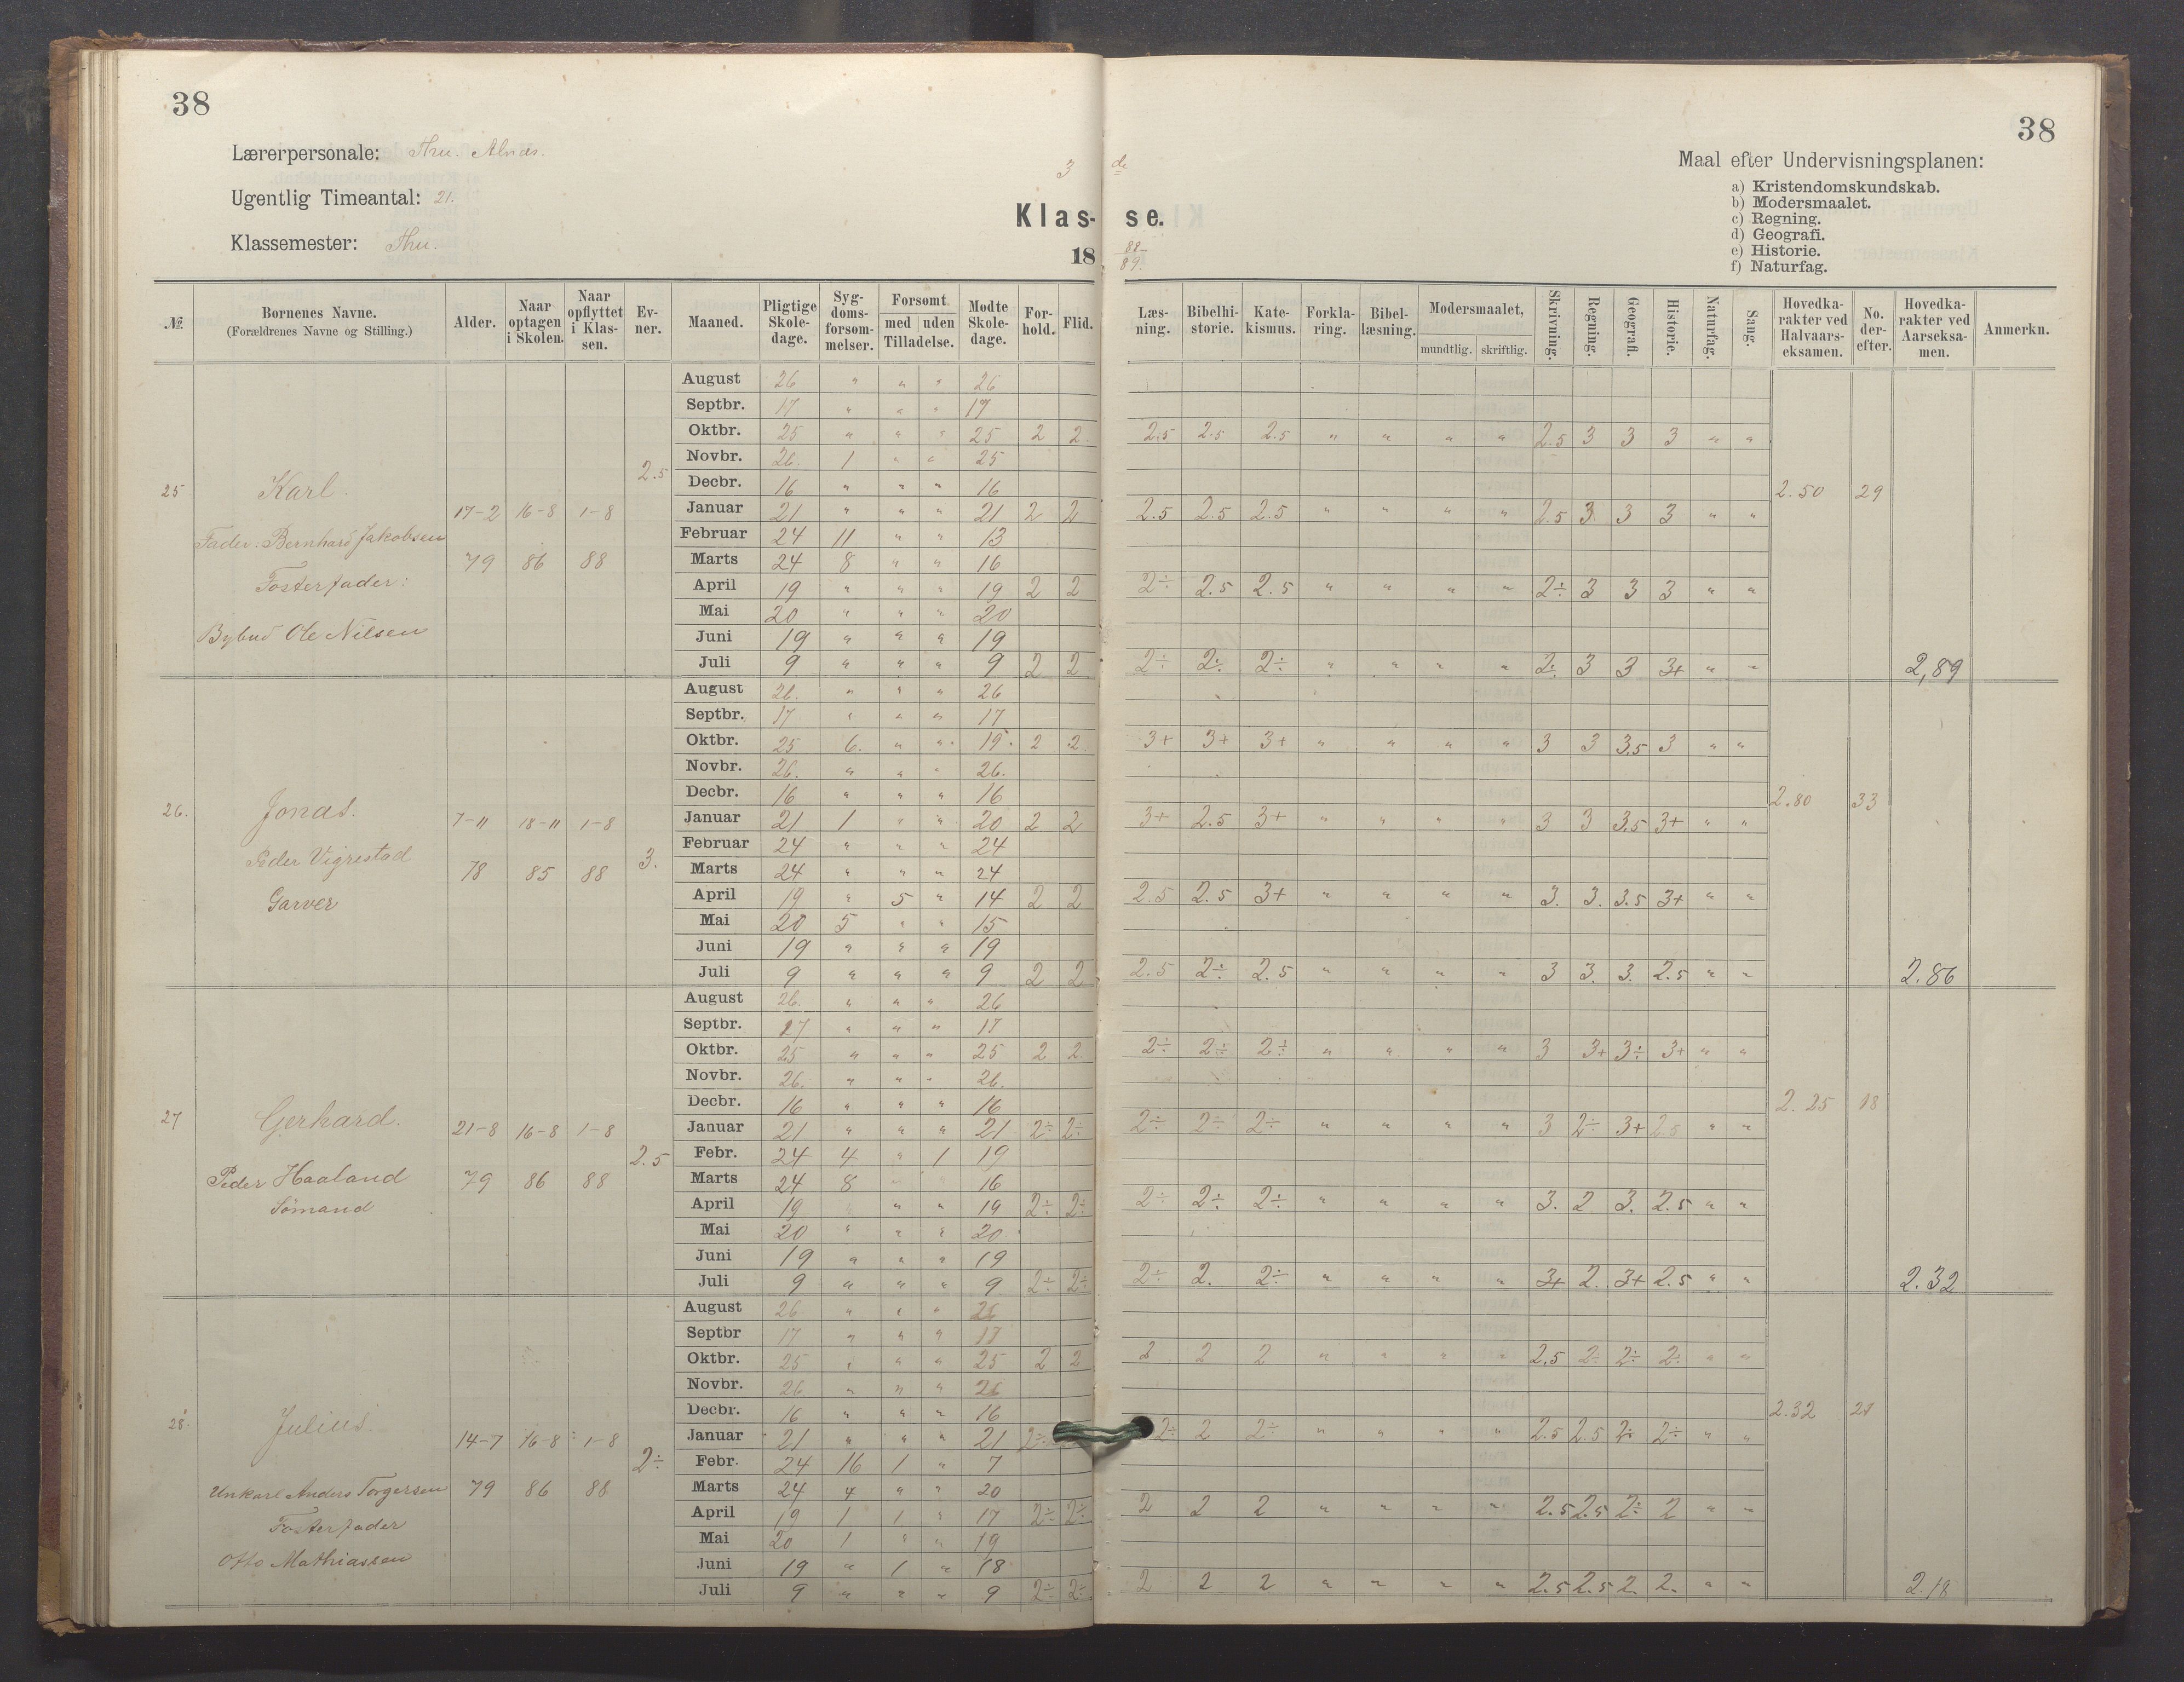 38
38
Lærerpersonale: Thu. Alnæs.
Ugentlig Timeantal: 21.
Klassemester: Thu.
3 de
Klas- se.
18 88/89.
Maal efter Undervisningsplanen:
a) Kristendomskundskab.
b) Modersmaalet.
c) Regning.
d) Geografi.
e) Historie.
f) Naturfag.
№ Børnenes Navne. (Forældrenes Navne og Stilling.) Alder. Naar optagen i Skolen. Naar opflyttet i Klassen. Evner. Maaned. Pligtige Skoledage. Sygdomsforsømmelser. Forsømt med uden Tilladelse. Mødte Skoledage. Forhold. Flid. Læsning. Bibelhistorie. Katekismus. Forklaring. Bibellæsning. Modersmaalet, mundtlig. skriftlig. Skrivning. Regning. Geografi. Historie. Naturfag. Sang. Hovedkarakter ved Halvaarseksamen. No. derefter. Hovedkarakter ved Aarseksamen. Anmerkn.
25 Karl.
Fader: Bernhard Jakobsen
Fosterfader:
Bybud Ole Nilsen
17-2 16-8 1-8
79 86 88
2.5
August 26 " " " 26
Septbr. 17 " " " 17
Oktbr. 25 " " " 25 2 2. 2.5 2.5 2.5 " " " " 2.5 3 3 3 " "
Novbr. 26. 1 " " 25
Decbr. 16 " " " 16
2.50 29
Januar 21 " " " 21 2 2 2.5 2.5 2.5 " " " " 2.5 3 3 3 " "
Februar 24 11 " " 13
Marts 24 8 " " 16
April 19 " " " 19 2 2 2÷ 2.5 2.5 " " " " 2÷ 3 3 3 " "
Mai 20 " " " 20
Juni 19 " " " 19
Juli 9 " " " 9 2 2 2÷ 2÷ 2÷ " " " " 2÷ 3 3 3+ " " 2,89
26. Jonas.
Peder Vigrestad
Garver
7-11 18-11 1-8
78 85 88
3.
August 26. " " " 26
Septbr. 17 " " " 17
Oktbr. 25 6. " " 19. 2 2. 3+ 3+ 3+ " " " " 3 3 3.5 3 " "
Novbr. 26. " " " 26.
Decbr. 16 " " " 16
2.80 33
Januar 21 1 " " 20 2 2 3+ 2.5 3+ " " " " 3 3 3.5 3+ " "
Februar 24 " " " 24
Marts 24 " " " 24
April 19 " 5 " 14 2 2 2.5 2.5 3+ " " " " 3. 3. 3.5 3+ " "
Mai 20 5 " " 15
Juni 19 " " " 19
Juli 9 " " " 9 2 2 2.5 2÷ 2.5 " " " " 3 3. 3. 2.5 " " 2.86
27 Gerhard.
Peder Haaland
Sømand
21-8 16-8 1-8
79 86 88
2.5
August 26. " " " 26
Septbr. 17 " " " 17
Oktbr. 25 " " " 25 2 2 2÷ 2÷ 2÷ " " " " 3 3+ 3÷ 3+ " "
Novbr. 26. " " " 26.
Decbr. 16 " " " 16
2.25 18
Januar 21 " " " 21 2÷ 2÷ 2÷ 2÷ 2÷ " " " " 3 2÷ 3+ 2.5 " "
Febr. 24 4 " 1 19
Marts 24 8 " " 16
April 19 " " " 19 2÷ 2÷ 2÷ 2÷ 2÷ " " " " 3. 2 3. 2.5 " "
Mai 20 " " " 20
Juni 19 " " " 19
Juli 9 " " " 9. 2÷ 2÷ 2÷ 2. 2÷ " " " " 3+ 2. 3+ 2.5 " " 2.32
28. Julius.
Unkarl Anders Torgersen
Fosterfader
Otto Mathiassen
14-7 16-8 1-8
79 86 88
2÷
August 26 " " " 26
Septbr 17 " " " 17
Oktbr. 25 " " " 25 2 2 2 2 2 " " " " 2.5 2÷ 2÷ 2÷ " "
Novbr. 26 " " " 26
Decbr. 16 " " " 16
2.32
Januar 21 " " " 21 2÷ 2÷ 2 2÷ " " " " 2.5 2.5 2÷ 2÷ " "
Febr. 24 16 1 " 7
Marts 24 4 " " 20
April 19 1 1 " 17 2÷ 2÷ 2 2 2 " " " " 2.5 2.5 2÷ 2 " "
Mai 20 1 " " 19
Juni 19 " 1 " 18
Juli 9 " " " 9 2÷ 2÷ 2 2 2 " " " " 2.5 2.5 2. 2. " " 2.18